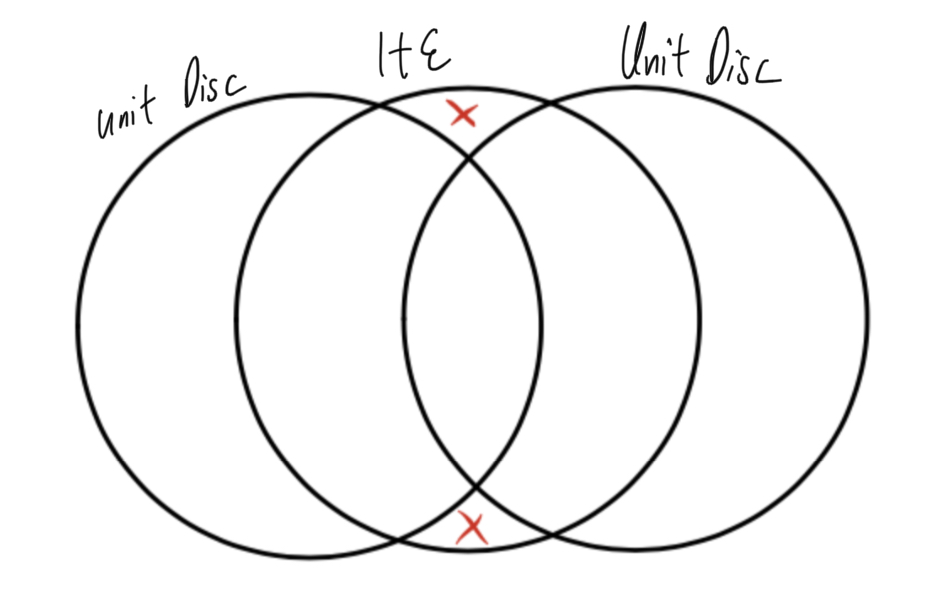 unit Disc
1+ε
Unit Disc